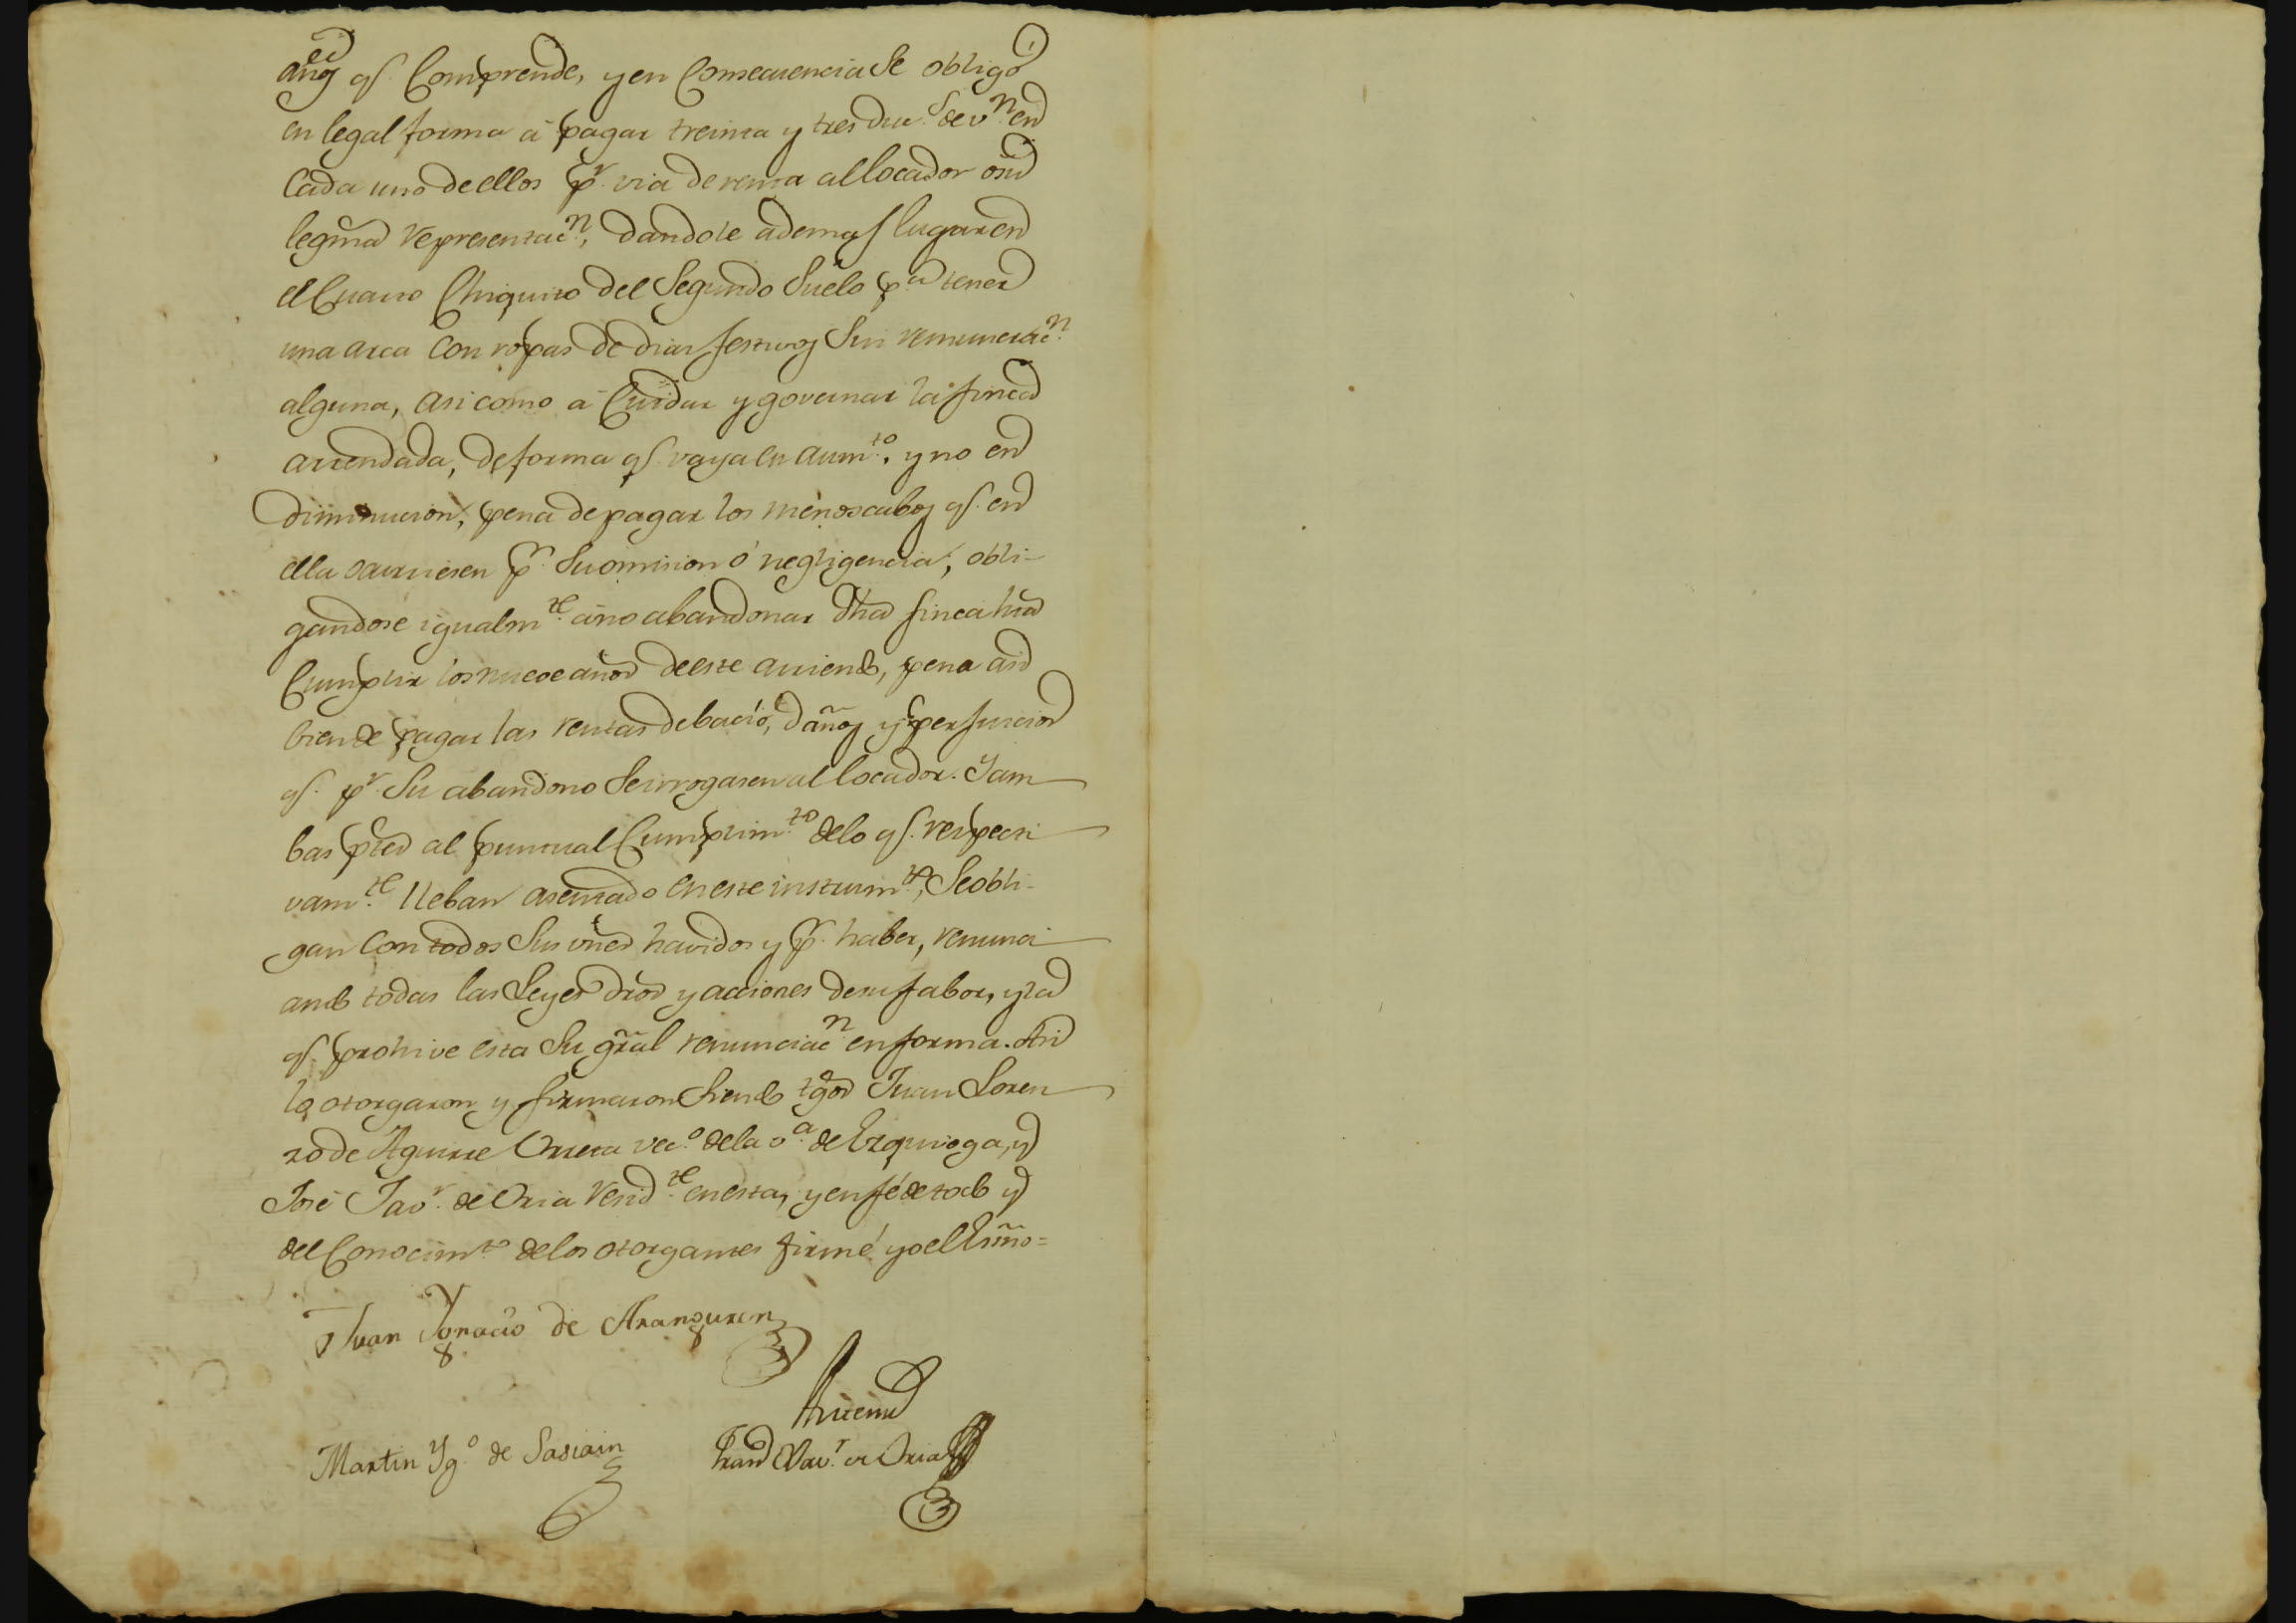 años qe. Comprende, y en Consecuencia Se obligó
en legal forma á pagar treinta y tres duc.s de v.n en
Cada uno de ellos p.r via de renta al locador o su
legma representac.n, dandole ademas lugar en
el Cuarto Chiquito del Segundo Suelo p.a tener
una arca Con ropas de dias festivos Sin remunerac.n
alguna, asi como á Cuidar y governar la finca
arrendada, de forma qe. vaya en aum.to, y no en
diminucion, pena de pagar los menoscabos qe. en
ella ocurriesen p.r Su omision ó negligencia, obli-
gandose igualm.te á no abandonar dha finca hta
Cumplir los nueve años de este arriendo, pena asi
bien de pagar las rentas de bacio, daños y perjuicios
qe. p.r Su abandono Se irrogasen al locador. Y am
bas ptes al puntual Cumplim.to de lo qe. respecti
vam.te lleban asentado en este instrum.to, Se obli-
gan Con todos Sus vnes havidos y p.r haber, renunci
ando todas las Leyes dros y acciones de su fabor, y la
qe. prohive esta Su gral renunciac.n en forma. Asi
lo otorgaron y firmaron Siendo tgos Juan Loren
zo de Aguirre Orueta vec.o de la v.a de Ezquioga, y
José Jav.r de Oria resid.te en esta, y en fé de todo y
del Conocim.to de los otorgantes firmé yo el Esño=
Juan Ygnacio de Aranguren
Antemi
Martin Yg.o de Sasiain Fran.co Xav.r de Oria